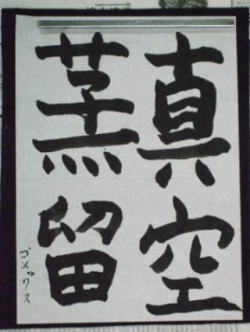 真空
蒸留
ゴメックス